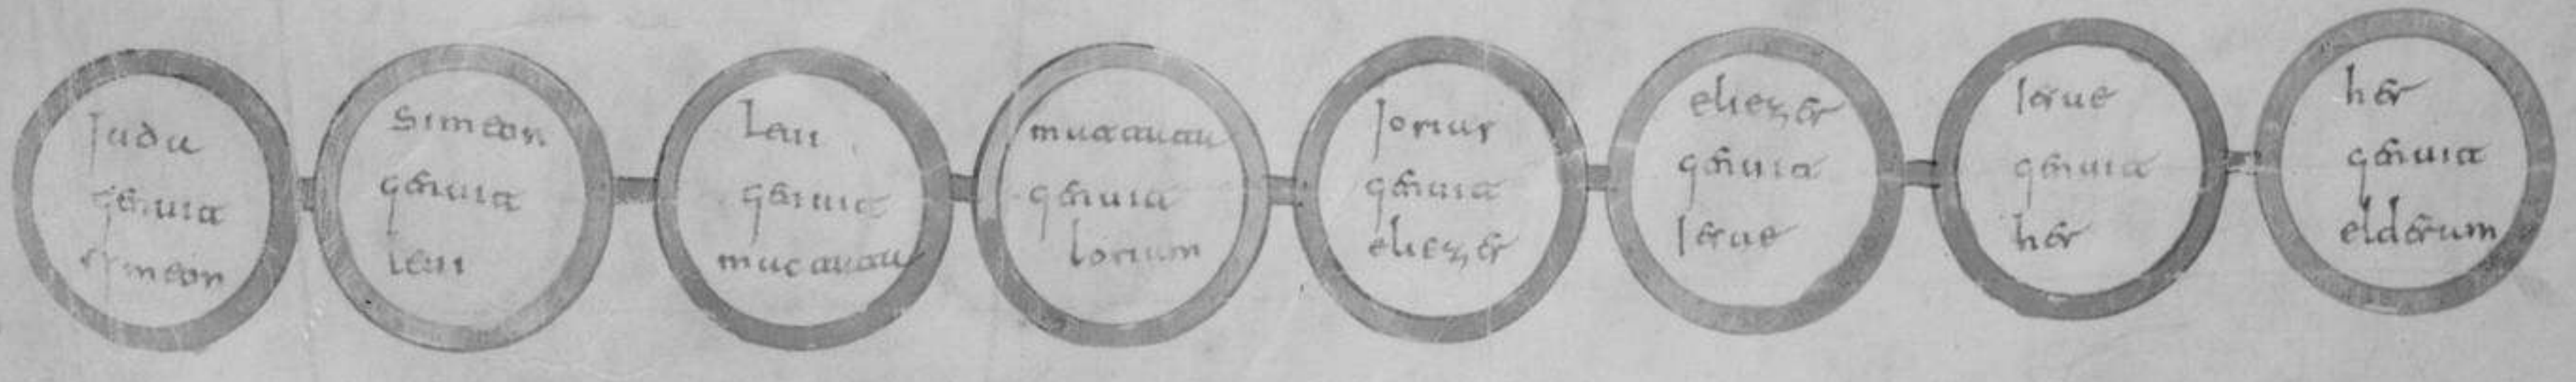 Juda
genuit
symeon
Simeon
genuit
Leui
Leui
genuit
matatau
matatau
genuit
Iorium
Iorius
genuit
eliezer
eliezer
genuit
Iesue
Iesue
genuit
her
her
genuit
elderum